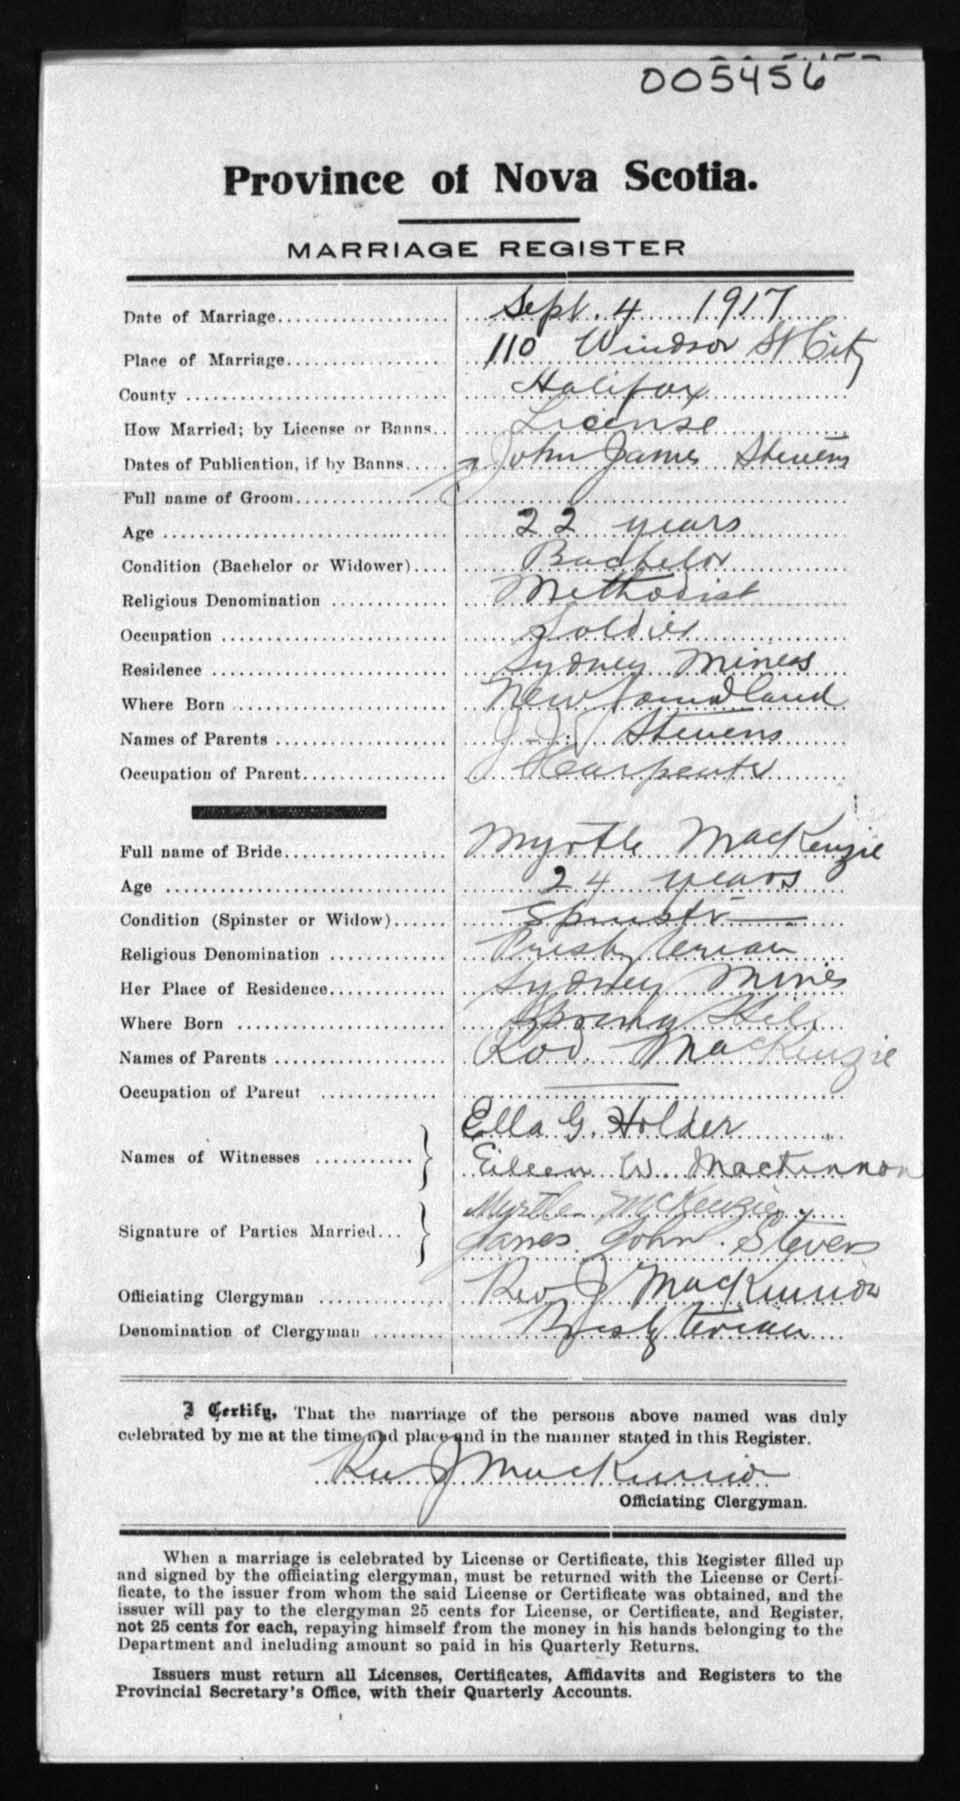 005456
Province of Nova Scotia.
MARRIAGE REGISTER
Date of Marriage Sept. 4 1917
Place of Marriage 110 Windsor St City
County Halifax
How Married; by License or Banns License
Dates of Publication, if by Banns John James Stevens
Full name of Groom
Age 22 years
Condition (Bachelor or Widower) Bachelor
Religious Denomination Methodist
Occupation Soldier
Residence Sydney Mines
Where Born Newfoundland
Names of Parents J. J. Stevens
Occupation of Parent Carpenter
Full name of Bride Myrtle MacKenzie
Age 24 years
Condition (Spinster or Widow) Spinster
Religious Denomination Presbyterian
Her Place of Residence Sydney Mines
Where Born Spring Hill
Names of Parents Rod. MacKenzie
Occupation of Parent
Ella G. Holder
Names of Witnesses
Eileen W. MacKinnon
Myrtle McKenzie
Signature of Parties Married
James John Stevens
Officiating Clergyman Rev J MacKinnon
Denomination of Clergyman Presbyterian
I Certify, That the marriage of the persons above named was duly
celebrated by me at the time and place and in the manner stated in this Register.
Rev J MacKinnon
Officiating Clergyman.
When a marriage is celebrated by License or Certificate, this Register filled up
and signed by the officiating clergyman, must be returned with the License or Certi-
ficate, to the issuer from whom the said License or Certificate was obtained, and the
issuer will pay to the clergyman 25 cents for License, or Certificate, and Register,
not 25 cents for each, repaying himself from the money in his hands belonging to the
Department and including amount so paid in his Quarterly Returns.
Issuers must return all Licenses, Certificates, Affidavits and Registers to the
Provincial Secretary's Office, with their Quarterly Accounts.